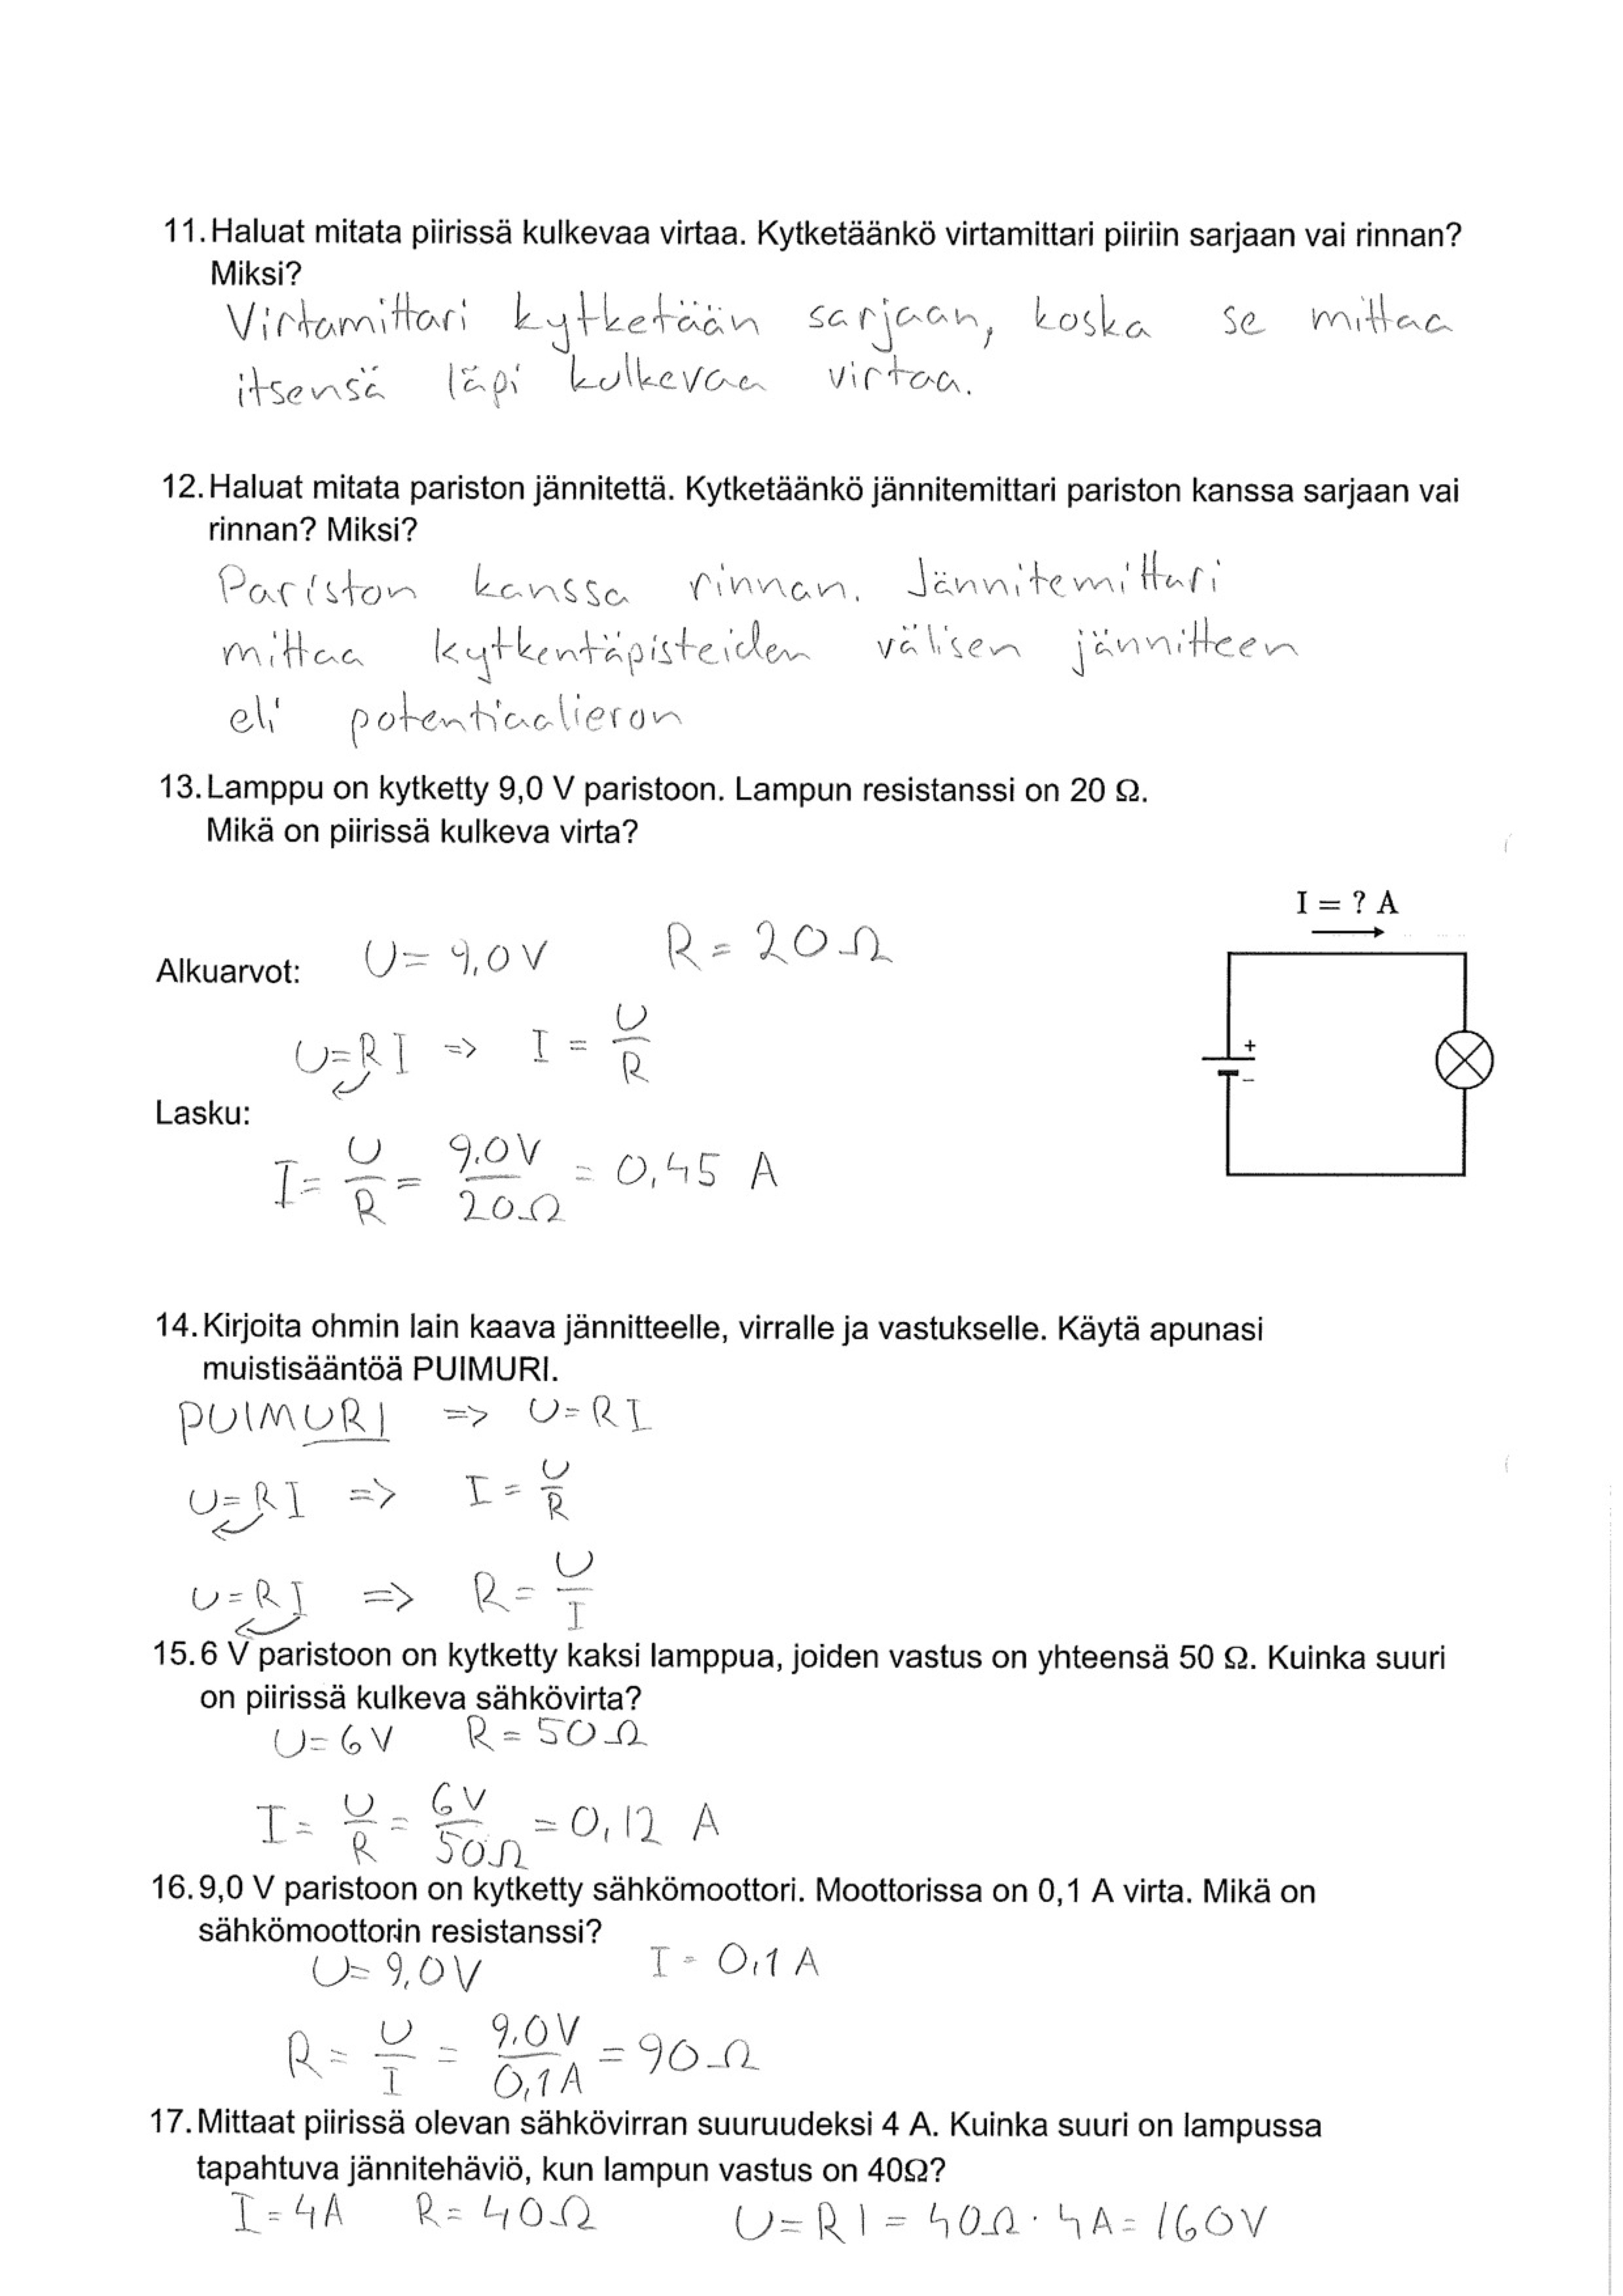 11. Haluat mitata piirissä kulkevaa virtaa. Kytketäänkö virtamittari piiriin sarjaan vai rinnan?
Miksi?
Virtamittari kytketään sarjaan, koska se mittaa
itsensä läpi kulkevaa virtaa.
12. Haluat mitata pariston jännitettä. Kytketäänkö jännitemittari pariston kanssa sarjaan vai
rinnan? Miksi?
Pariston kanssa rinnan. Jännitemittari
mittaa kytkentäpisteiden välisen jännitteen
eli potentiaalieron
13. Lamppu on kytketty 9,0 V paristoon. Lampun resistanssi on 20 Ω.
Mikä on piirissä kulkeva virta?
I = ? A
Alkuarvot: U = 9,0 V R = 20 Ω
U = R I => I = U/R
+
−
Lasku:
I = U/R = 9,0 V / 20 Ω = 0,45 A
14. Kirjoita ohmin lain kaava jännitteelle, virralle ja vastukselle. Käytä apunasi
muistisääntöä PUIMURI.
PUIMURI => U = R I
U = R I => I = U/R
U = R I => R = U/I
15. 6 V paristoon on kytketty kaksi lamppua, joiden vastus on yhteensä 50 Ω. Kuinka suuri
on piirissä kulkeva sähkövirta?
U = 6 V R = 50 Ω
I = U/R = 6 V / 50 Ω = 0,12 A
16. 9,0 V paristoon on kytketty sähkömoottori. Moottorissa on 0,1 A virta. Mikä on
sähkömoottorin resistanssi?
U = 9,0 V I = 0,1 A
R = U/I = 9,0 V / 0,1 A = 90 Ω
17. Mittaat piirissä olevan sähkövirran suuruudeksi 4 A. Kuinka suuri on lampussa
tapahtuva jännitehäviö, kun lampun vastus on 40Ω?
I = 4 A R = 40 Ω U = R I = 40 Ω · 4 A = 160 V